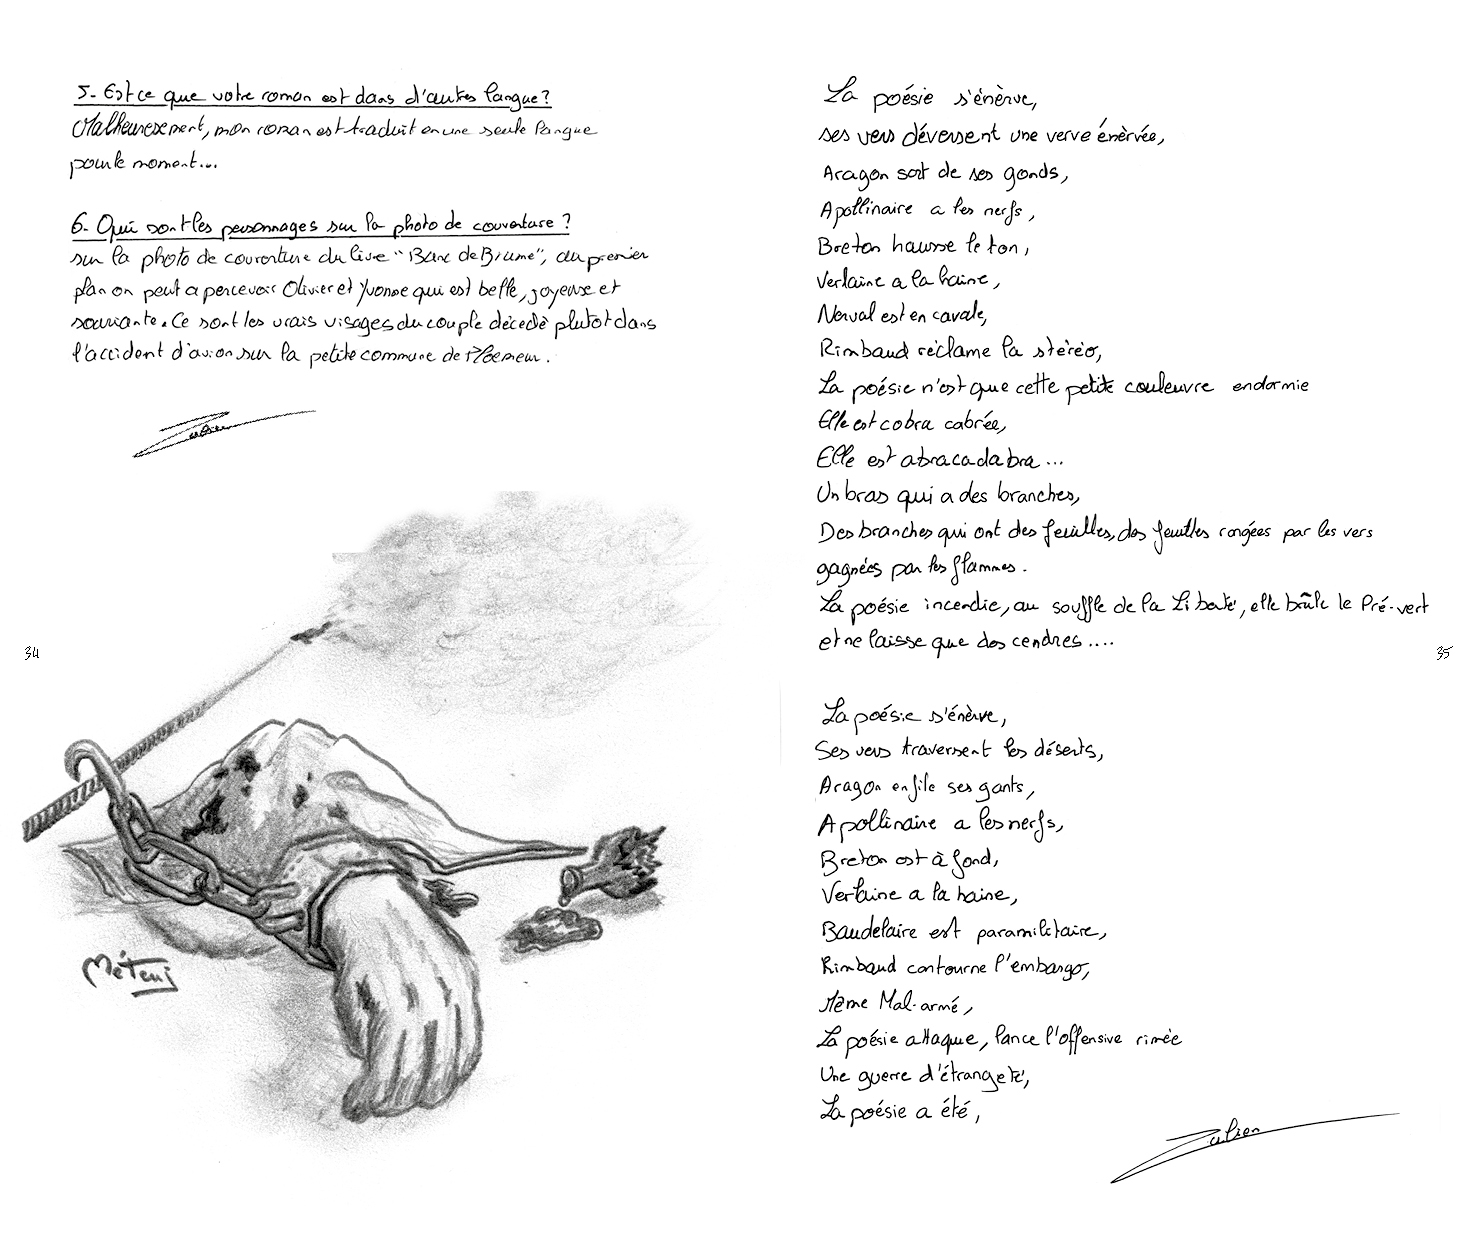 5. Est ce que votre roman est dans d'autres langue?
Malheuresement, mon roman est traduit en une seule langue
pour le moment...
6. Qui sont les personnages sur la photo de couverture ?
sur la photo de couverture du livre "Banc de Brume", au premier
plan on peut apercevoir Olivier et Yvonne qui est belle, joyeuse et
souriante. Ce sont les vrais visages du couple décedé plutot dans
l'accident d'avion sur la petite commune de Ploemeur.
Julien
34
Méteni
La poésie s'énèrve,
ses vers déversent une verve énèrvée,
Aragon sort de ses gonds,
Apollinaire a les nerfs,
Breton hausse le ton,
Verlaine a la haine,
Nerval est en cavale,
Rimbaud réclame la stéréo,
La poésie n'est que cette petite couleuvre endormie
Elle est cobra cabrée,
Elle est abracadabra...
Un bras qui a des branches,
Des branches qui ont des feuilles, des feuilles rongées par les vers
gagnées par les flammes.
La poésie incendie, au souffle de la Liberté, elle brûle le Pré-vert
et ne laisse que des cendres....
La poésie s'énèrve,
Ses vers traversent les déserts,
Aragon enfile ses gants,
Apollinaire a les nerfs,
Breton est à fond,
Verlaine a la haine,
Baudelaire est paramilitaire,
Rimbaud contourne l'embargo,
Même Mal-armé,
La poésie attaque, lance l'offensive rimée
Une guerre d'étrangeté,
La poésie a été,
Julien
35